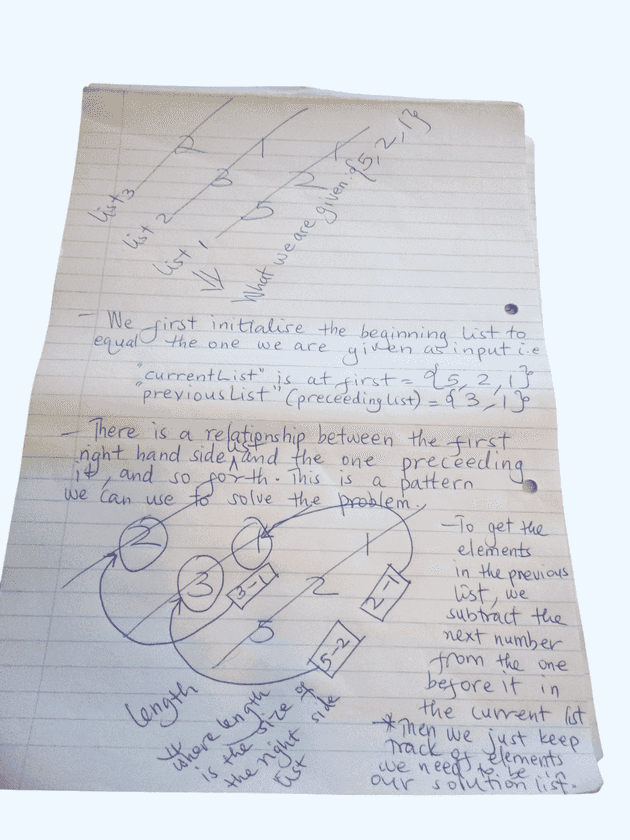 List 3
2
List 2
3 1
List 1
5 2 1
What we are given: {5, 2, 1}
- We first initialise the beginning List to
equal the one we are given as input i.e
"currentList" is at first = {5, 2, 1}
"previousList" (preceeding list) = {3, 1}
- There is a relationship between the first
right hand side list and the one preceeding
it, and so forth. This is a pattern
we can use to solve the problem.
2
3 1
5 2 1
3-1
2-1
5-2
length
where length
is the size of
the right side
list
- To get the
elements
in the previous
list, we
subtract the
next number
from the one
before it in
the current list
* Then we just keep
track of elements
we need to be in
our solution list.